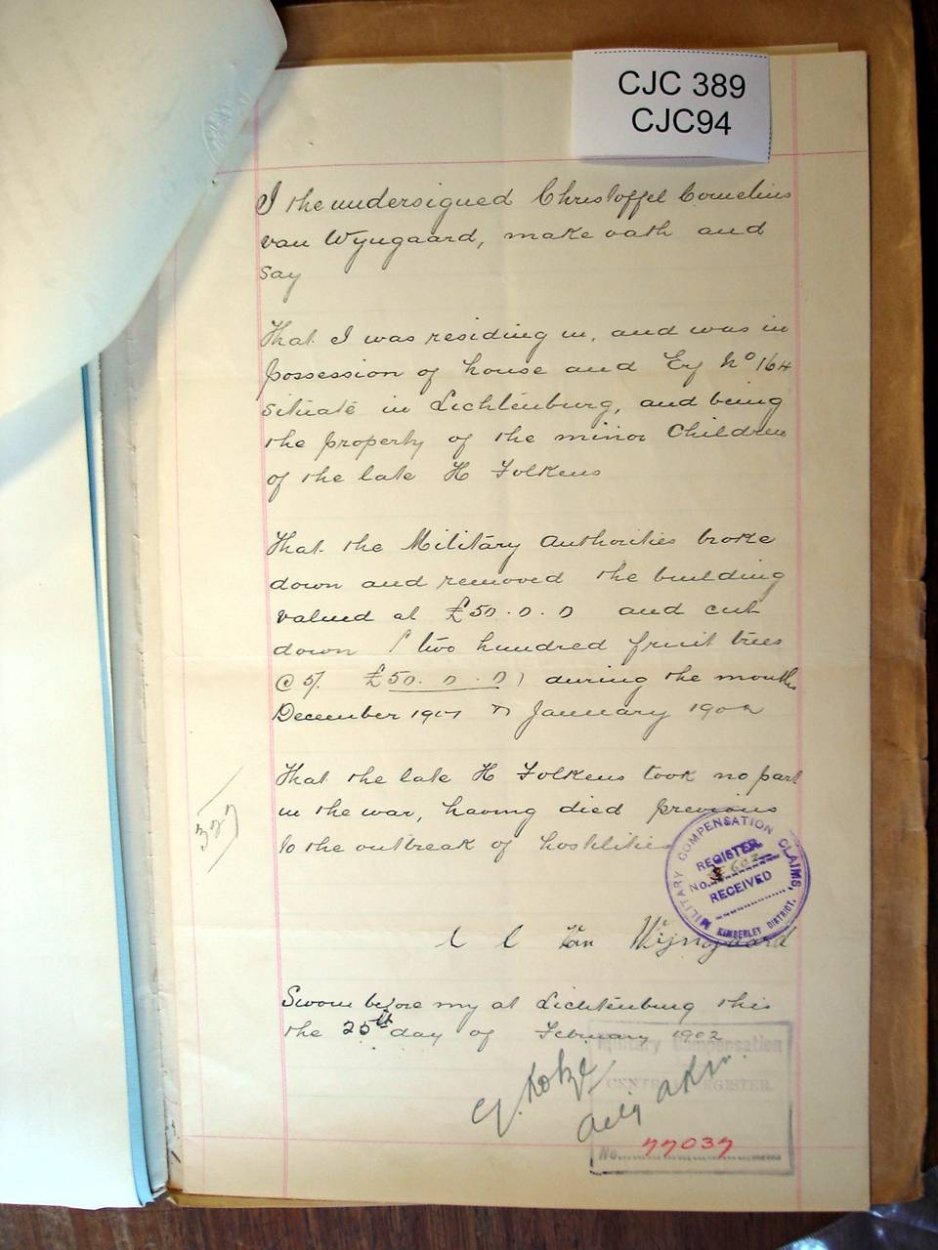 CJC 389
CJC94
I the undersigned Christoffel Cornelius
van Wyngaard, make oath and
say
That I was residing in, and was in
possession of house and Erf No 164
situate in Lichtenburg, and being
the property of the minor Children
of the late H Folkens
That the Military Authorities broke
down and removed the building
valued at £50.0.0 and cut
down (two hundred fruit trees
@ 5/. £50.0.0) during the months
December 1901 & January 1902
That the late H Folkens took no part
in the war, having died previous
to the outbreak of hostilities
MILITARY COMPENSATION CLAIMS,
REGISTER
No.
RECEIVED
KIMBERLEY DISTRICT.
C C Van Wijngaard
Sworn before my at Lichtenburg this
the 25th day of February 1902
Military Compensation
CENTRAL REGISTER.
Kotze
No. 77037